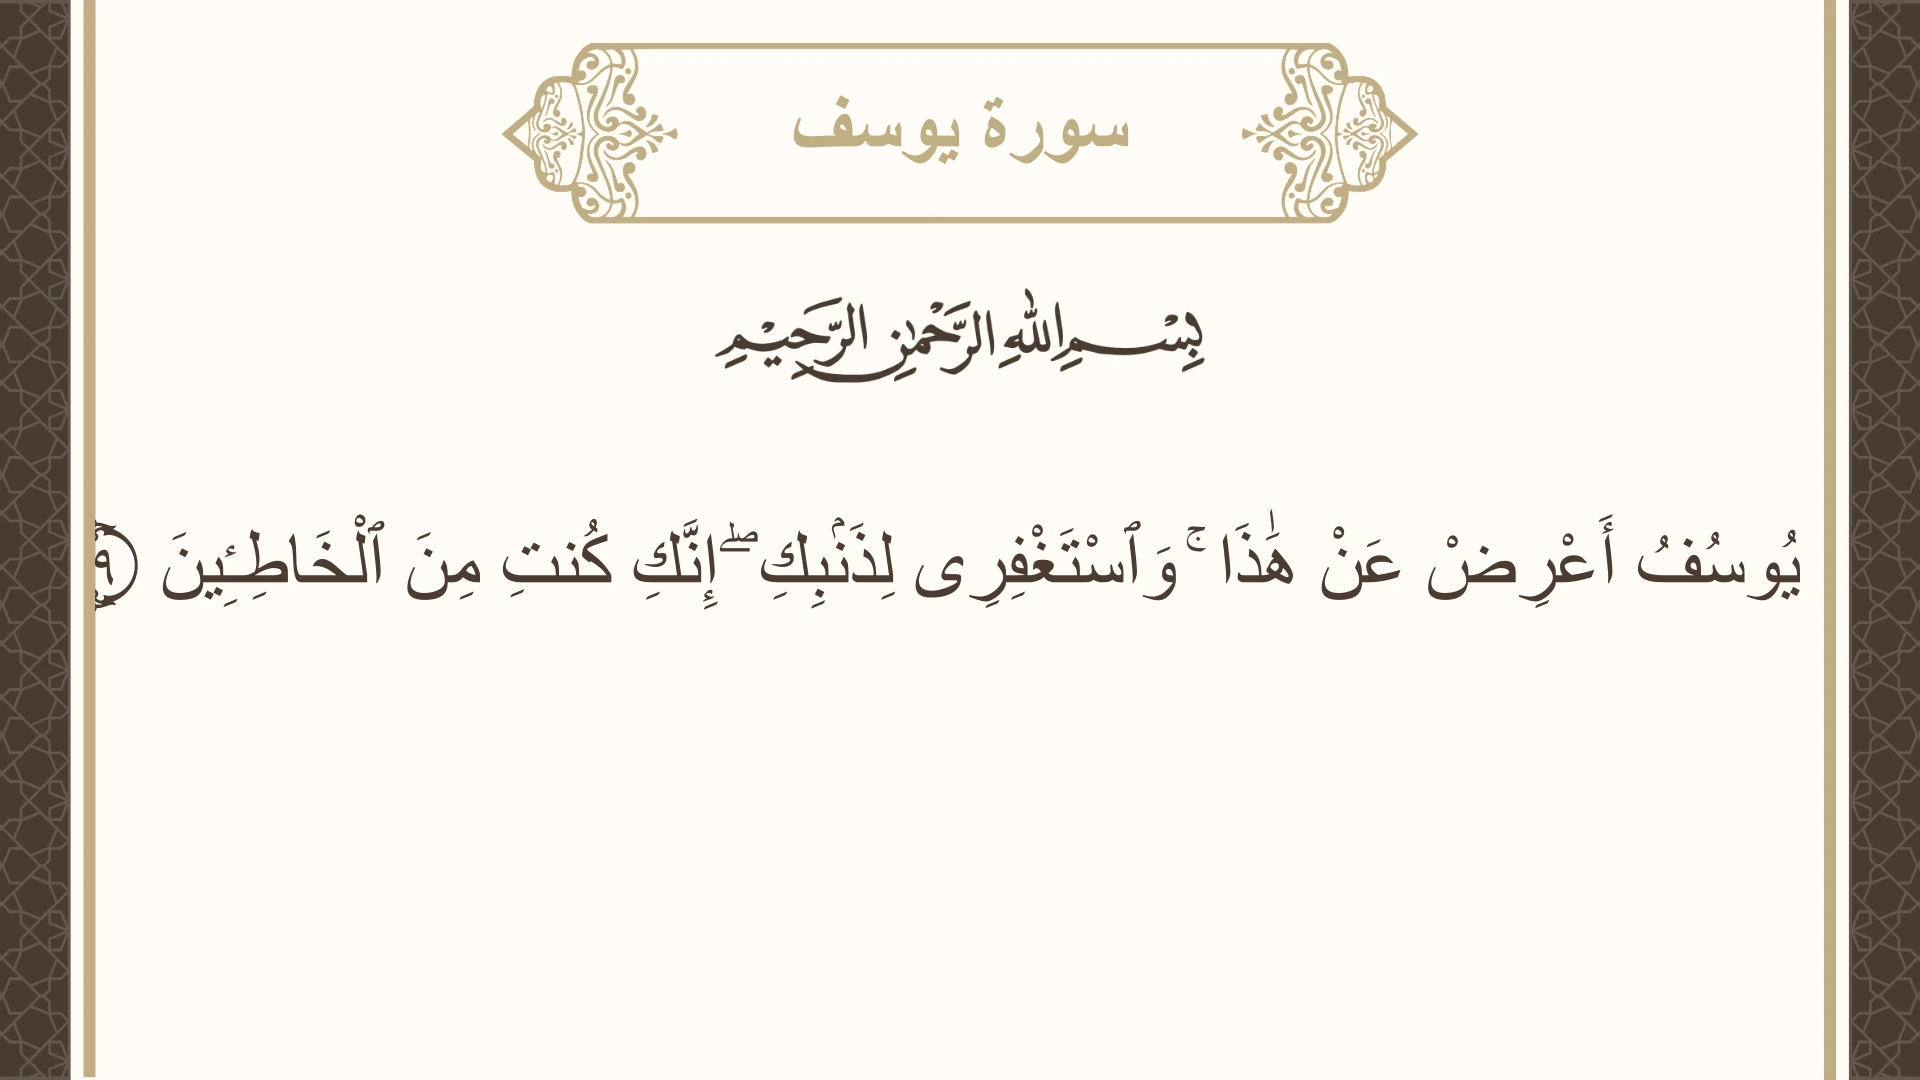 سورة يوسف
بِسْمِ اللهِ الرَّحْمٰنِ الرَّحِيْمِ
يُوسُفُ أَعْرِضْ عَنْ هَٰذَا ۚ وَٱسْتَغْفِرِى لِذَنۢبِكِ ۖ إِنَّكِ كُنتِ مِنَ ٱلْخَاطِـِٔينَ